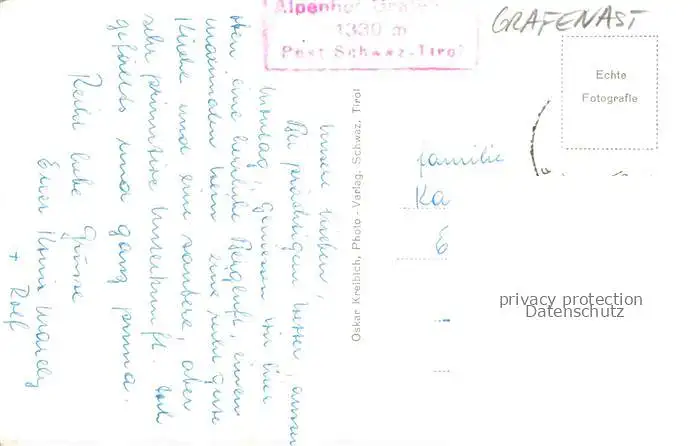 Alpenhof Grafenast
1330 m
Post Schwaz-Tirol
GRAFENAST
Echte
Fotografie
Meine Lieben,
Bei prächtigem Wetter,
Montag, geniessen wir hier
oben eine herrliche Bergluft, einen
maximalen Heim eine sehr gute
Küche und eine saubere, aber
sehr primitive Unterkunft. Doch
gefällts uns ganz prima.
Recht liebe Grüsse
Euer
+ Rolf
Oskar Kreibich, Photo-Verlag, Schwaz, Tirol
familie
Ka
E
privacy protection
Datenschutz